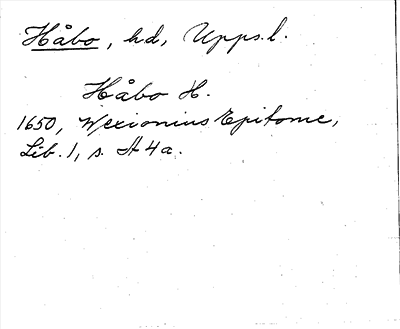 Håbo, hd, Upps.l.
Håbo H.
1650, Wexionius Epitome,
Lib. 1, s. A 4a.